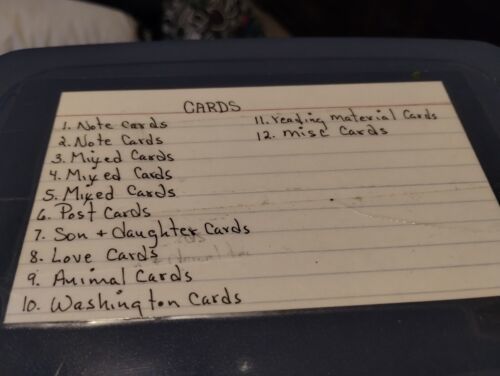 CARDS
1. Note Cards
2. Note Cards
3. Mixed Cards
4. Mixed Cards
5. Mixed Cards
6. Post Cards
7. Son + daughter Cards
8. Love Cards
9. Animal Cards
10. Washington Cards
11. reading material Cards
12. misc Cards